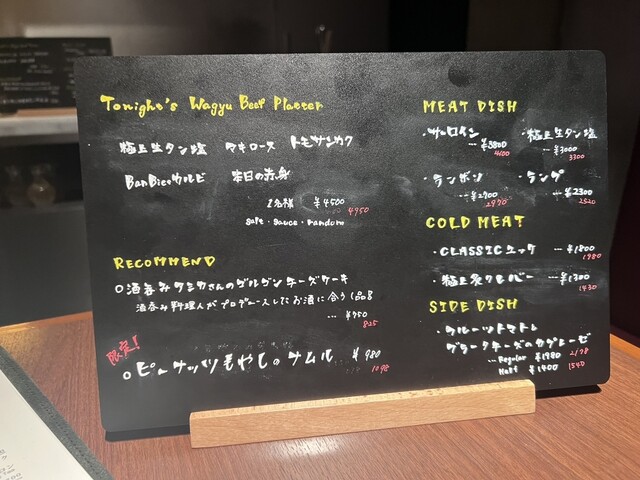 Tonight's Wagyu Beef Platter
極上生タン塩 マキロース トモサンカク
BanBicoカルビ 本日の赤身
2名様 ¥4500
4950
salt・sauce・random
RECOMMEND
○酒呑みクミコさんのゴルゴンチーズケーキ
酒呑み料理人がプロデュースしたお酒に合う1品
... ¥750
825
限定!
○ピュアッツもやしのナムル ¥980
1078
MEAT DISH
・サーロイン
... ¥3800
・極上生タン塩
... ¥3000
3300
・ランボソ
... ¥2700
2970
・ランプ
... ¥2300
2520
COLD MEAT
・CLASSICユッケ ... ¥1800
1980
・極上炙りレバー ... ¥1300
1430
SIDE DISH
・フルーツトマトと
ブラータチーズのカプレーゼ
... Regular ¥1980
2178
Half ¥1400
1540